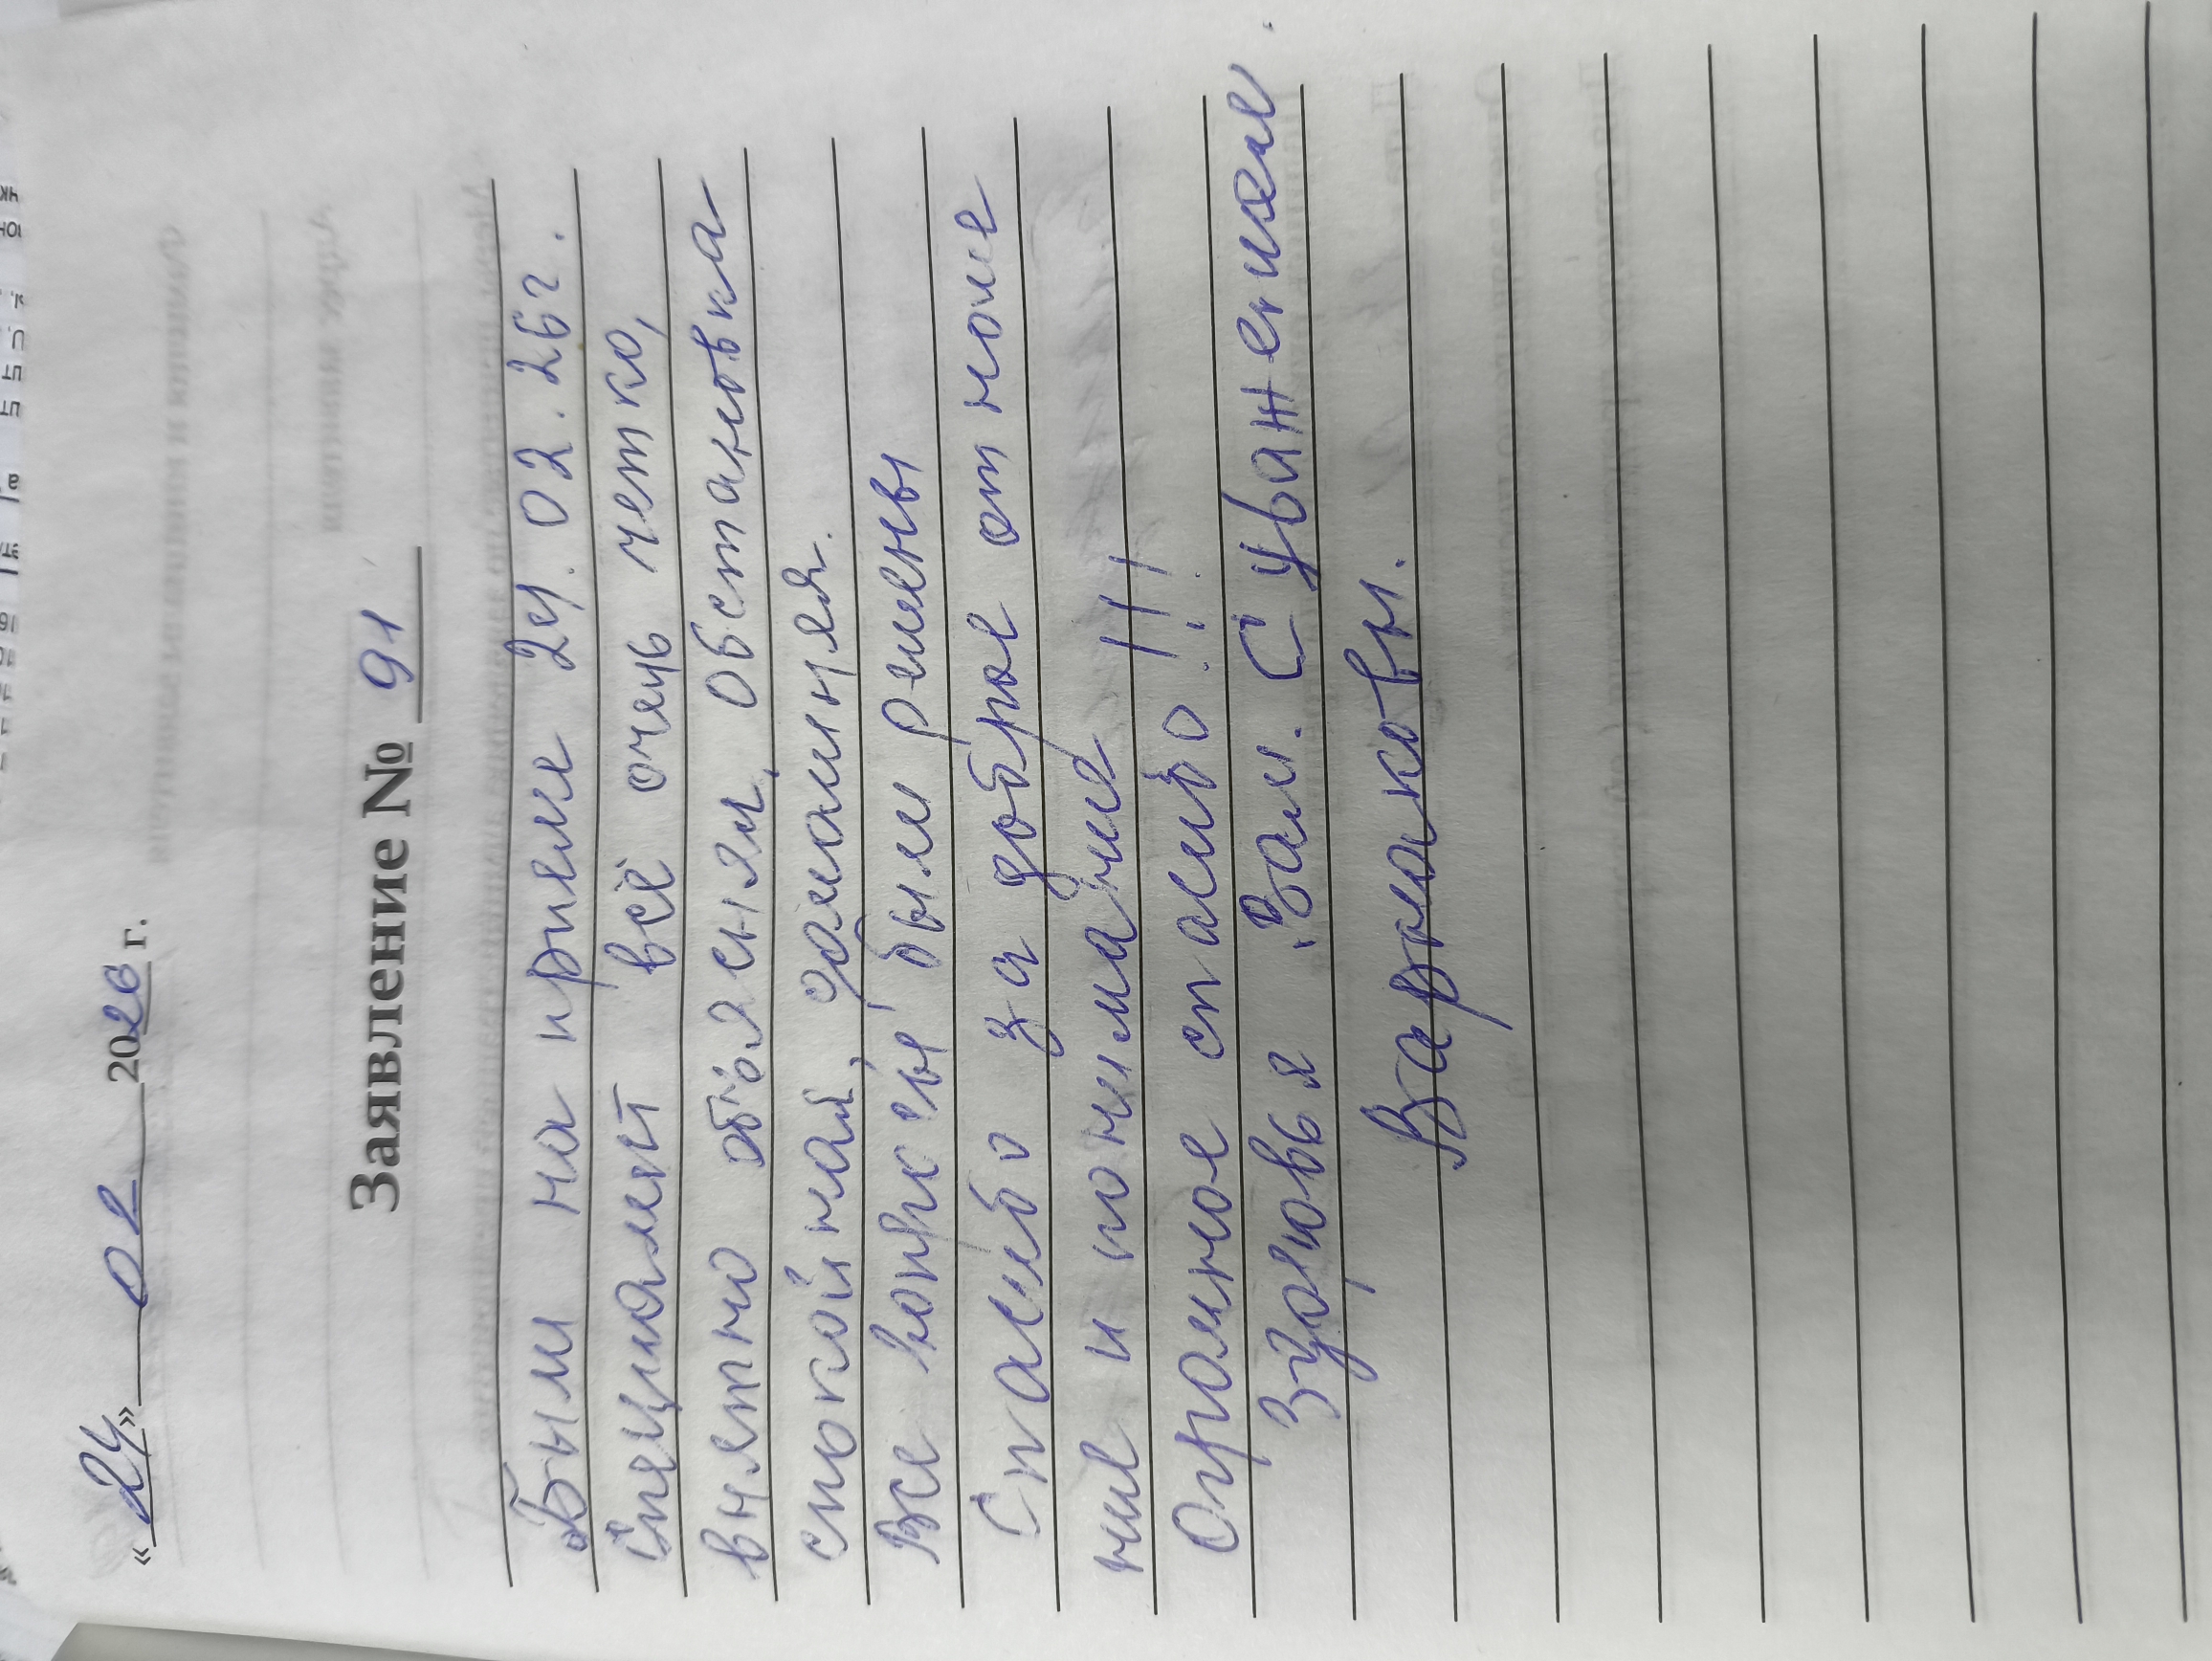 «24» 02 2026 г.
Заявление № 91
Были на приеме 24.02.26г.
Специалист всё очень четко,
внятно объяснял. Обстановка
спокойная, домашняя.
Все вопросы были решены
Спасибо за доброе отноше
ние и понимание
Огромное спасибо!!!
Здоровья Вам. С уважением